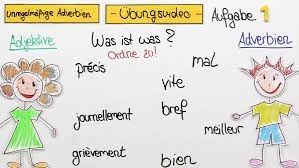 Unregelmäßige Adverbien
- Übungsvideo -
Aufgabe 1
Adjektive
Was ist was?
Adverbien
Ordne zu!
précis
mal
vite
journellement
bref
meilleur
grièvement
bien